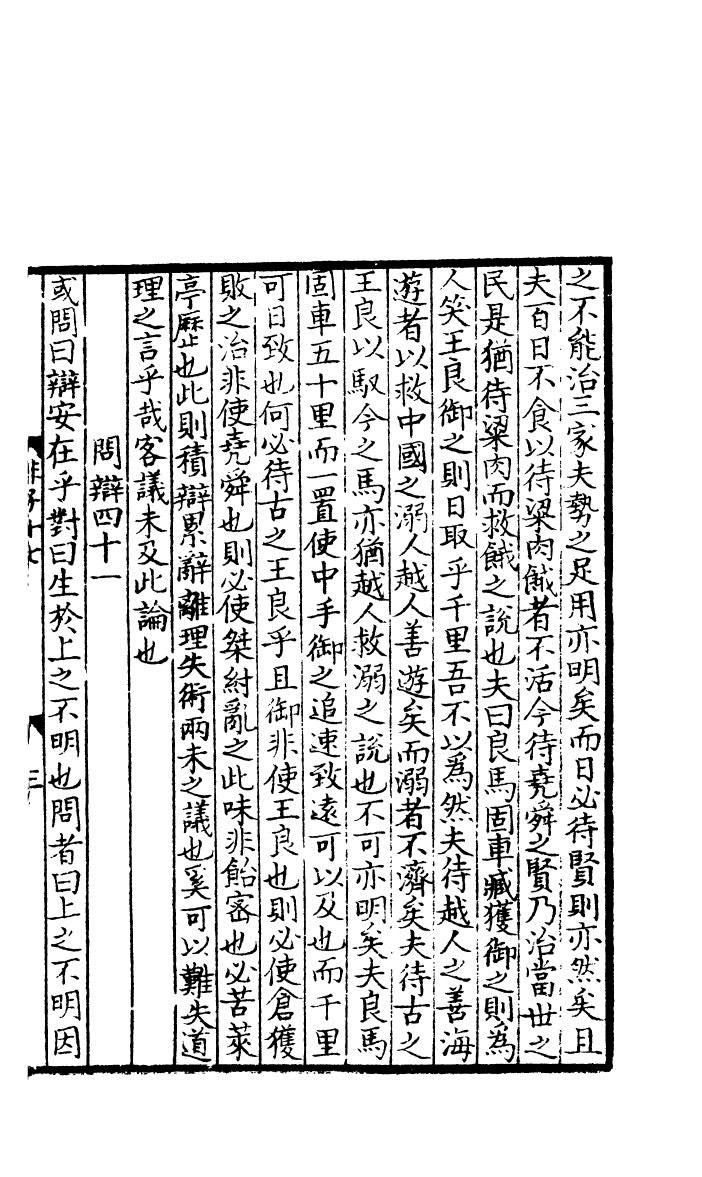 之不能治三家夫勢之足用亦明矣而日必待賢則亦然矣且
夫百日不食以待粱肉餓者不活今待堯舜之賢乃治當世之
民是猶待粱肉而救餓之說也夫曰良馬固車臧獲御之則為
人笑王良御之則日取乎千里吾不以為然夫待越人之善海
遊者以救中國之溺人越人善遊矣而溺者不濟矣夫待古之
王良以馭今之馬亦猶越人救溺之說也不可亦明矣夫良馬
固車五十里而一置使中手御之追速致遠可以及也而千里
可日致也何必待古之王良乎且御非使王良也則必使倉獲
敗之治非使堯舜也則必使桀紂亂之此味非飴密也必苦萊
亭歷也此則積辯累辭離理失術兩未之議也奚可以難失道
理之言乎哉客議未及此論也
問辯四十一
或問曰辯安在乎對曰生於上之不明也問者曰上之不明因
三